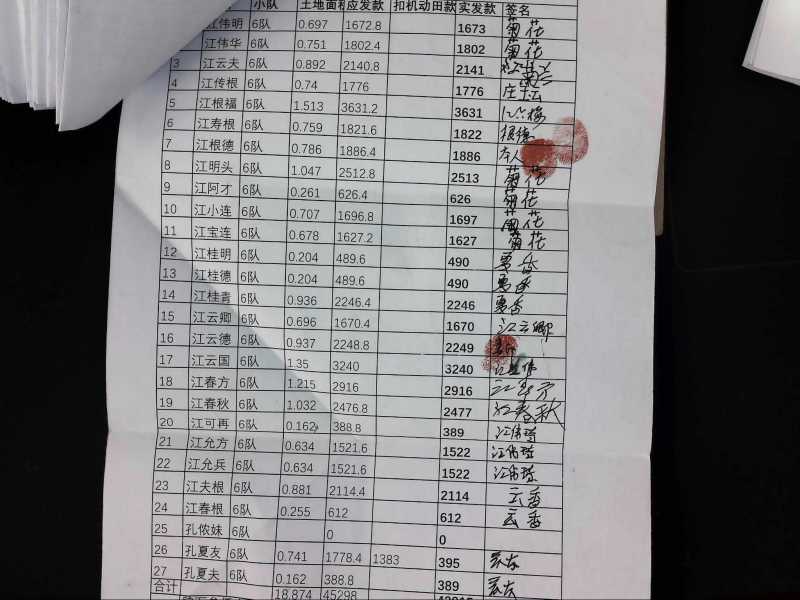 小队 土地面积 应发款 扣机动田款 实发款 签名
江伟明 6队 0.697 1672.8 1673 菊花
江伟华 6队 0.751 1802.4 1802 菊花
3 江云夫 6队 0.892 2140.8 2141
4 江传根 6队 0.74 1776 1776 庄玉云
5 江根福 6队 1.513 3631.2 3631
6 江寿根 6队 0.759 1821.6 1822 根德
7 江根德 6队 0.786 1886.4 1886 本人
8 江明头 6队 1.047 2512.8 2513 菊花
9 江阿才 6队 0.261 626.4 626 菊花
10 江小连 6队 0.707 1696.8 1697 菊花
11 江宝连 6队 0.678 1627.2 1627 菊花
12 江桂明 6队 0.204 489.6 490 夏香
13 江桂德 6队 0.204 489.6 490 夏香
14 江桂青 6队 0.936 2246.4 2246 夏香
15 江云卿 6队 0.696 1670.4 1670 江云卿
16 江云德 6队 0.937 2248.8 2249
17 江云国 6队 1.35 3240 3240
18 江春方 6队 1.215 2916 2916 江春方
19 江春秋 6队 1.032 2476.8 2477 江春秋
20 江可再 6队 0.162 388.8 389
21 江允方 6队 0.634 1521.6 1522
22 江允兵 6队 0.634 1521.6 1522
23 江夫根 6队 0.881 2114.4 2114 云香
24 江春根 6队 0.255 612 612 云香
25 孔侬妹 6队 0 0
26 孔夏友 6队 0.741 1778.4 1383 395
27 孔夏夫 6队 0.162 388.8 389
合计 18.874 45298